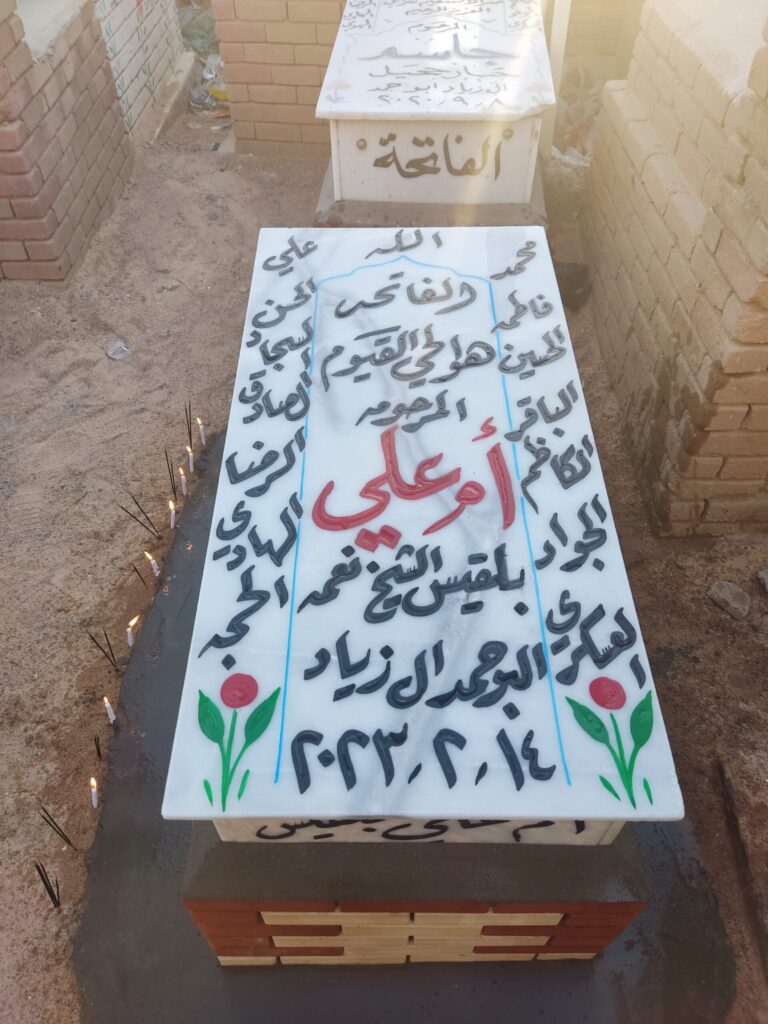 الفاتحة
محمد
الله
علي
فاطمه
الحسن
الحسين
السجاد
الباقر
الصادق
الكاظم
الرضا
الجواد
الهادي
العسكري
الحجه
الفاتحه
هو الحي القيوم
المرحومه
أم علي
بلقيس الشيخ نعمه
البو حمد ال زياد
٢٠٢٣.٢.١٤
المرحوم
جاسم
ال زياد ابو حمد
٢٠٢٠.٩.٨
ام علي بلقيس